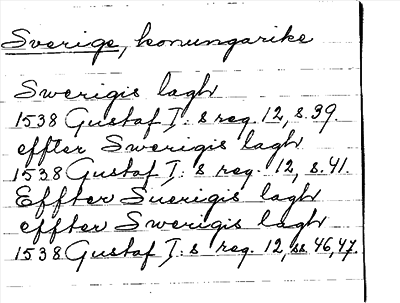 Sverige, konungarike
Swerigis lagh
1538 Gustaf I:s reg. 12, s. 39.
effter Swerigis lagh
1538 Gustaf I:s reg. 12, s. 41.
Effter Suerigis lagh
effter Swerigis lagh
1538 Gustaf I:s reg. 12, ss. 46, 47.